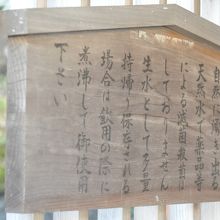 然に湧き出る
天然水で薬品等
による滅菌処置は
しておりません
生水として多量
持帰り保存される
場合は飲用の際に
煮沸して御使用
下さい